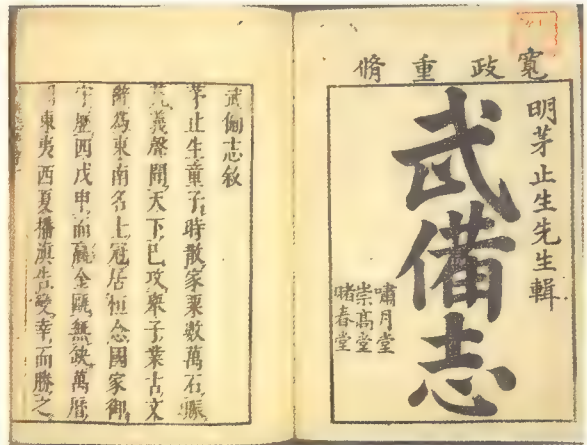 寛政重脩
明茅止生先生輯
武備志
嘯月堂
崇高堂
睹春堂
武俻志敘
茅止生童子時散家粟數萬石賑
荒義聲聞天下已攻舉子業古文
為東南名士冠居恒念國家御
宇歷四戊申而金甌無缺萬曆
東夷西夏播滇告變幸而勝之